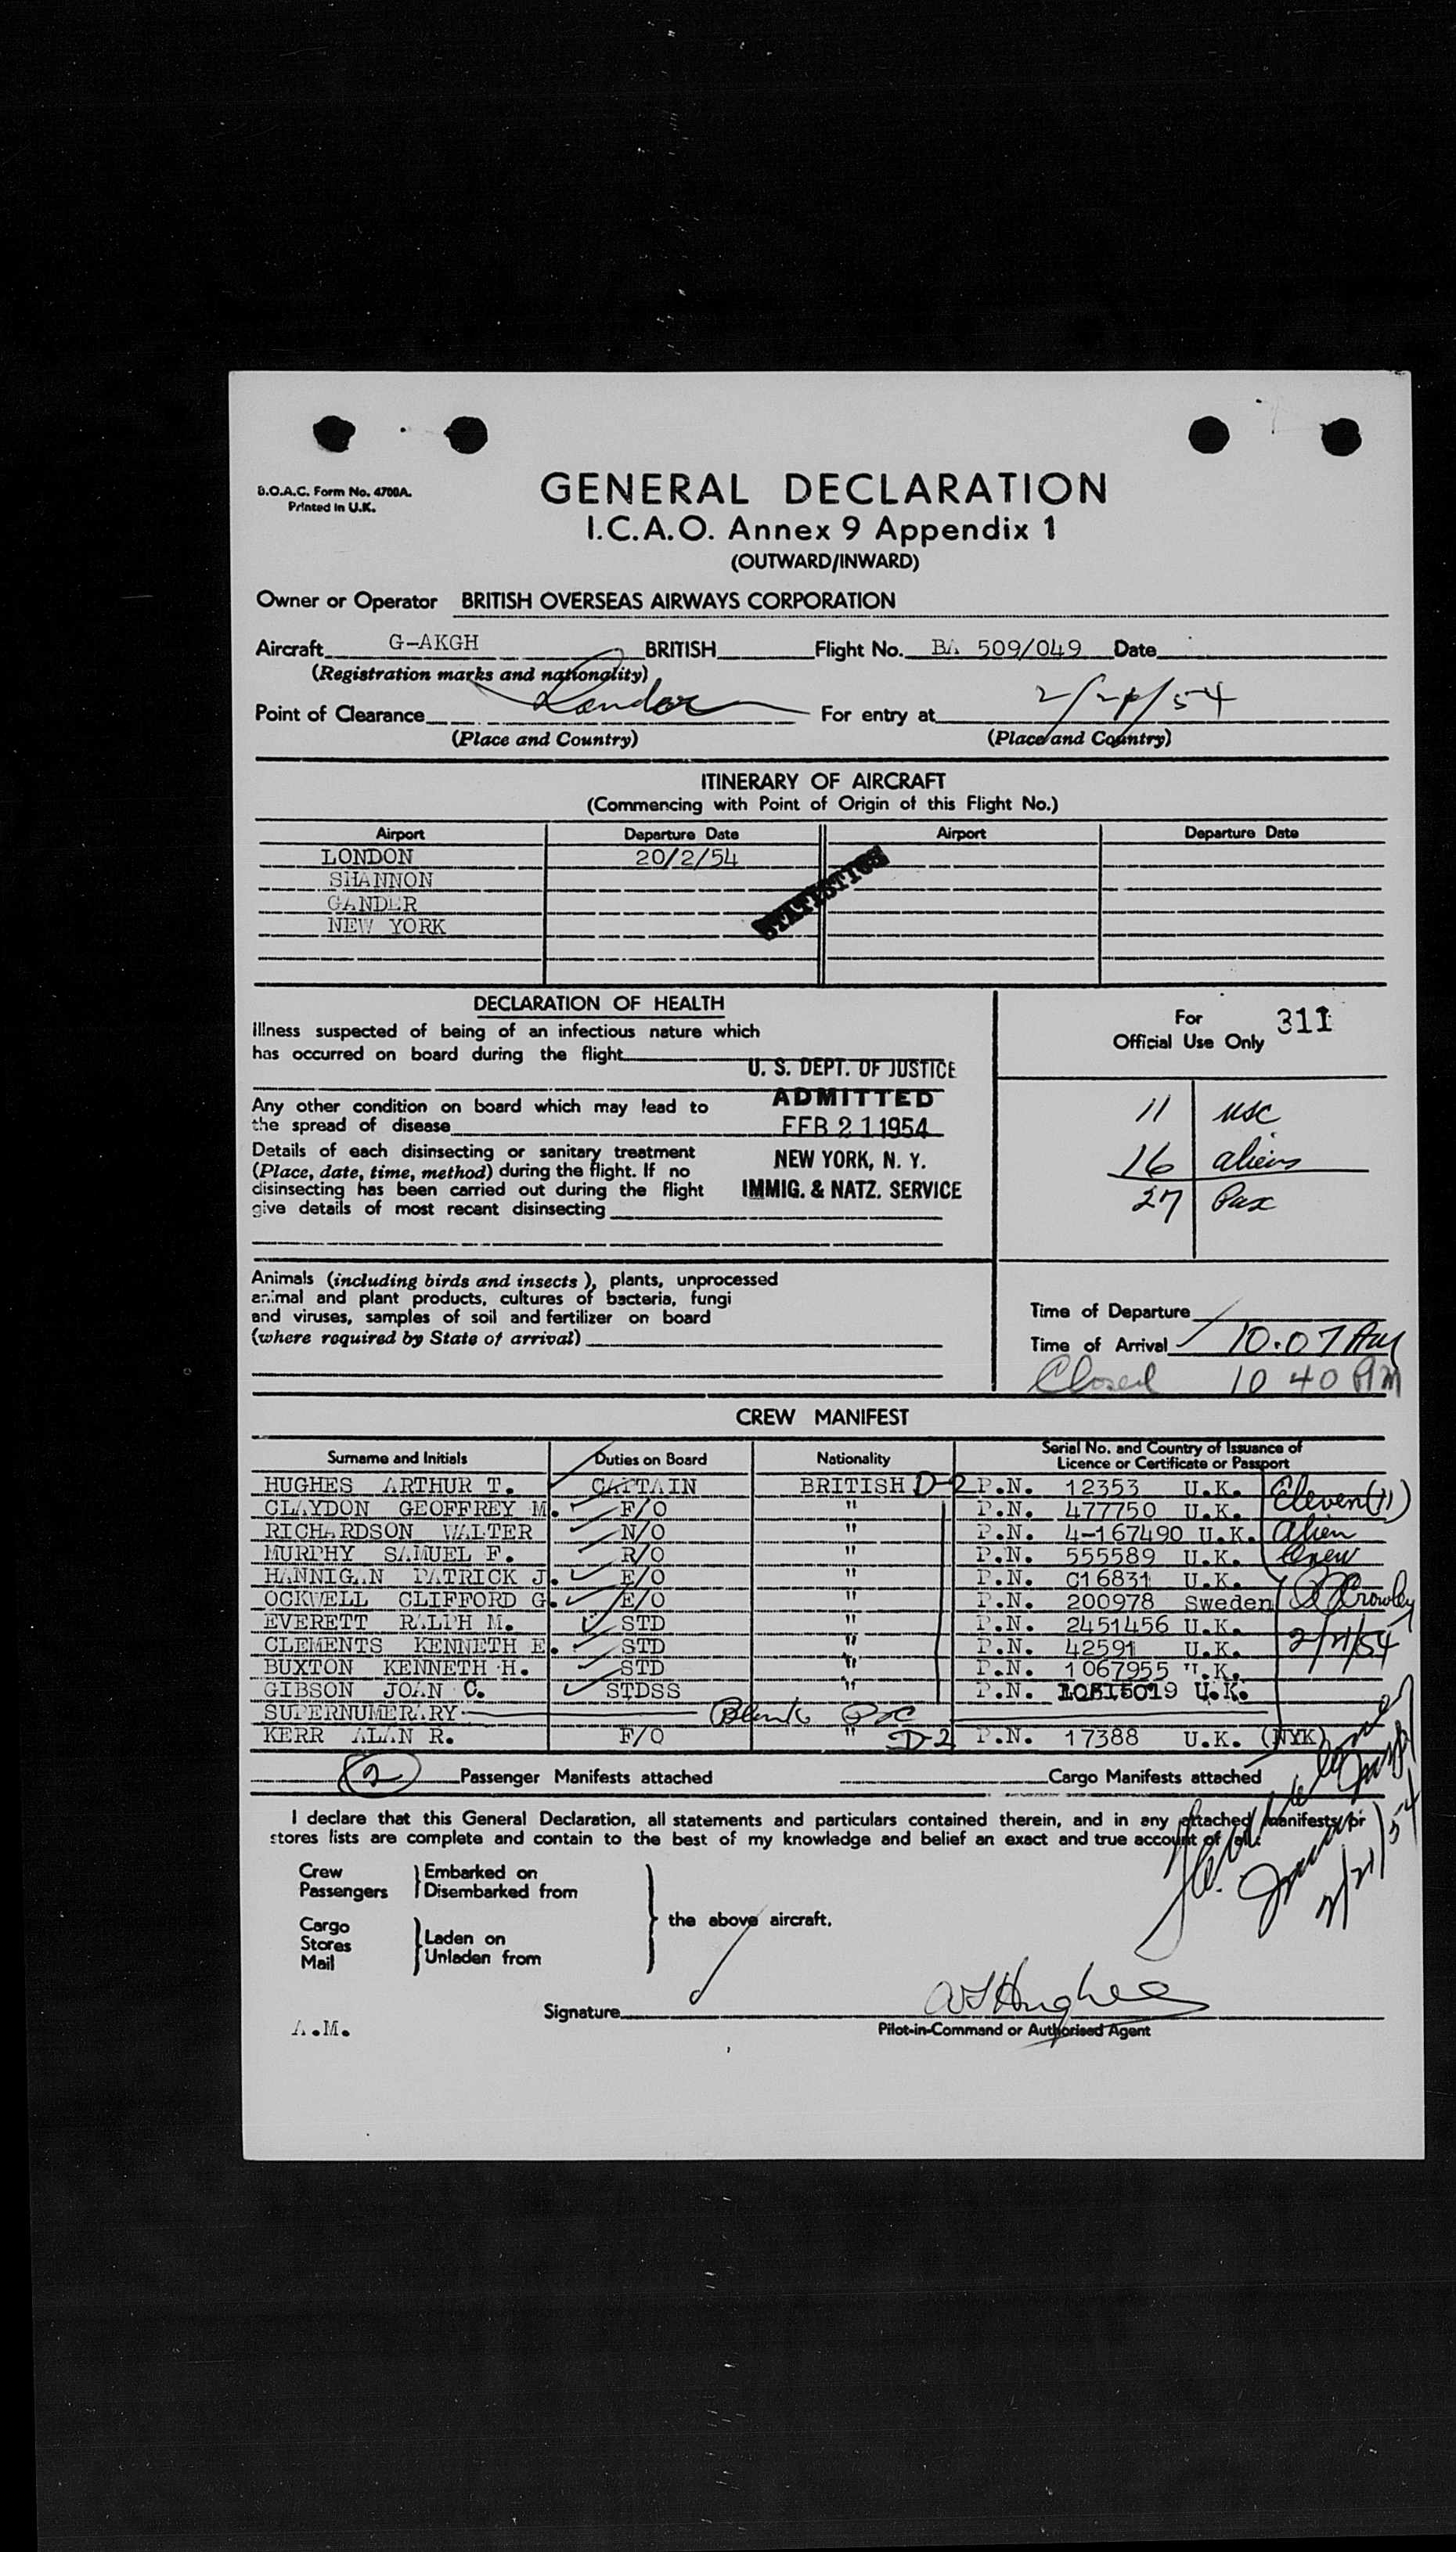 B.O.A.C. Form No. 4700A.
Printed in U.K.
GENERAL DECLARATION
I.C.A.O. Annex 9 Appendix 1
(OUTWARD/INWARD)
Owner or Operator BRITISH OVERSEAS AIRWAYS CORPORATION
Aircraft G-AKGH BRITISH Flight No. BA 509/049 Date
(Registration marks and nationality)
Point of Clearance London For entry at 2/21/54
(Place and Country) (Place and Country)
ITINERARY OF AIRCRAFT
(Commencing with Point of Origin of this Flight No.)
Airport Departure Date Airport Departure Date
LONDON 20/2/54
SHANNON
GANDER
NEW YORK
STATISTICS
DECLARATION OF HEALTH
Illness suspected of being of an infectious nature which
has occurred on board during the flight
Any other condition on board which may lead to
the spread of disease
Details of each disinsecting or sanitary treatment
(Place, date, time, method) during the flight. If no
disinsecting has been carried out during the flight
give details of most recent disinsecting
U. S. DEPT. OF JUSTICE
ADMITTED
FEB 21 1954
NEW YORK, N. Y.
IMMIG. & NATZ. SERVICE
For
Official Use Only 311
11 USC
16 aliens
27 Pax
Animals (including birds and insects), plants, unprocessed
animal and plant products, cultures of bacteria, fungi
and viruses, samples of soil and fertilizer on board
(where required by State of arrival)
Time of Departure
Time of Arrival 10.07 AM
Closed 10 40 AM
CREW MANIFEST
Surname and Initials Duties on Board Nationality Serial No. and Country of Issuance of
Licence or Certificate or Passport
HUGHES ARTHUR T. CAPTAIN BRITISH D-2 P.N. 12353 U.K. Eleven (11)
CLAYDON GEOFFREY M. F/O " P.N. 477750 U.K.
RICHARDSON WALTER N/O " P.N. 4-167490 U.K. Alien
MURPHY SAMUEL F. R/O " P.N. 555589 U.K. Crew
HANNIGAN PATRICK J. E/O " P.N. C16831 U.K.
OCKWELL CLIFFORD G. E/O " P.N. 200978 Sweden Crowley
EVERETT RALPH M. STD " P.N. 2451456 U.K.
CLEMENTS KENNETH E. STD " P.N. 42591 U.K. 2/21/54
BUXTON KENNETH H. STD " P.N. 1067955 U.K.
GIBSON JOAN C. STDSS " P.N. U.K.
SUPERNUMERARY
KERR ALAN R. F/O " D-2 P.N. 17388 U.K. (NYK)
(2) Passenger Manifests attached Cargo Manifests attached
I declare that this General Declaration, all statements and particulars contained therein, and in any attached manifests or
stores lists are complete and contain to the best of my knowledge and belief an exact and true account of all:
2/21/54
Crew
Passengers
Embarked on
Disembarked from
Cargo
Stores
Mail
Laden on
Unladen from
the above aircraft.
Signature A T Hughes
A.M.
Pilot-in-Command or Authorised Agent